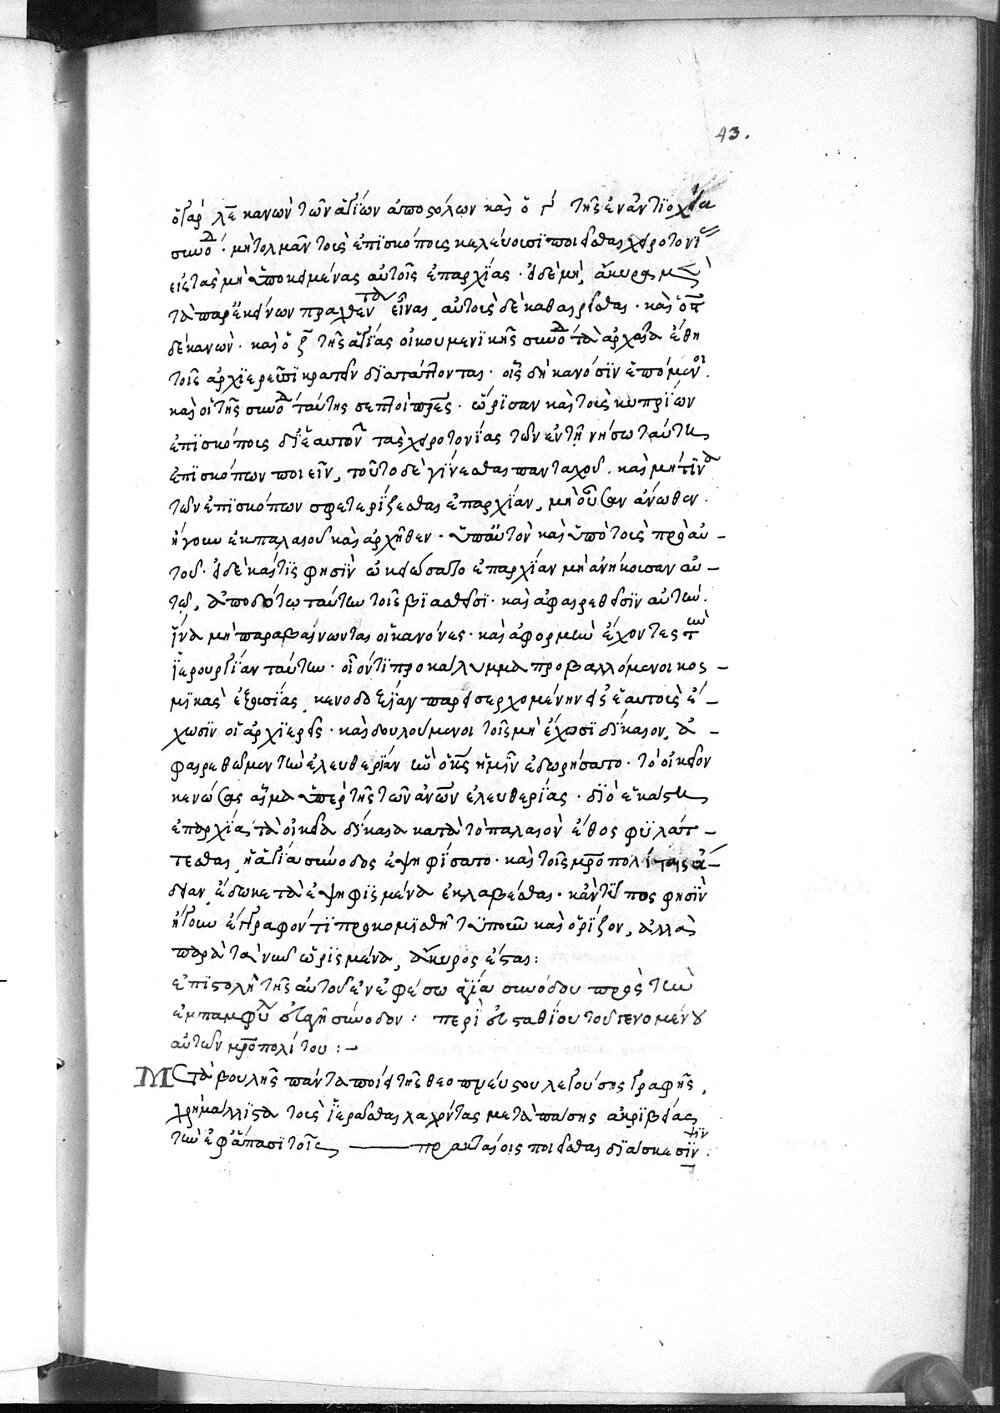 43.
ὁ γὰρ λε κανὼν τῶν ἁγίων ἀποστόλων καὶ ὁ ιγ τῆς ἐν ἀντιοχεία
συνοδ · μὴ τολμᾶν τοὺς ἐπισκόπους κελεύουσι ποιεῖσθαι χειροτονί
εἰς τὰς μὴ ὑποκειμένας αὐτοῖς ἐπαρχίας · εἰ δὲ μὴ, ἄκυρα μὲν
τὰ παρ' ἐκείνων πραχθέντα εἶναι, αὐτοὺς δὲ καθαιρεῖσθαι · καὶ ὁ
δὲ κανὼν · καὶ ὁ ζ τῆς ἁγίας οἰκουμενικῆς συνοδ τὰ ἀρχαῖα ἔθη
τοῖς ἀρχιερεῦσι κρατεῖν διατάττοντας · οἷς δὴ κανόσιν ἑπόμενοι
καὶ οἱ τῆς συνοδ ταύτης σεπτοὶ πρες · ὥρισαν καὶ τοὺς κυπρίων
ἐπισκόπους δι' ἑαυτῶν τὰς χειροτονίας τῶν ἐν τῇ νήσω ταύτη
ἐπισκόπων ποιεῖν, τοῦτο δὲ γίνεσθαι πανταχοῦ · καὶ μὴ τινὰ
τῶν ἐπισκόπων σφετερίζεσθαι ἐπαρχίαν, μὴ οὖσαν ἄνωθεν ·
ἤγουν ἐκ παλαιοῦ καὶ ἀρχῆθεν · ὑπ' αὐτὸν καὶ ὑπὸ τοὺς πρὸ αὐ-
τοῦ · εἰ δὲ καὶ τις φησὶν ᾠκειώσατο ἐπαρχίαν μὴ ἀνήκουσαν αὐ-
τῷ, ἀποδότω ταύτην τοῖς βιασθεῖσι · καὶ ἀφαιρεθεῖσιν αὐτὴν ·
ἵνα μὴ παραβαίνωνται οἱ κανόνες · καὶ ἀφορμὴν ἔχοντες τὴν
ἱερουργίαν ταύτην · οἷόν τι προκάλυμμα προβαλλόμενοι κοσ-
μικῆς ἐξουσίας, κενοδοξίαν παρεισερχομένην εἰς ἑαυτοὺς ἔ-
χωσιν οἱ ἀρχιερεῖς · καὶ δουλούμενοι τοῖς μὴ ἔχουσι δίκαιον, ἀ-
φαιρεθῶμεν τὴν ἐλευθερίαν ἣν ὁ κς ἡμῖν ἐδωρήσατο · τὸ οἰκεῖον
κενώσας αἷμα ὑπὲρ τῆς τῶν ἀνων ἐλευθερίας · διὸ ἑκάστη
ἐπαρχία τὰ οἰκεῖα δίκαια κατὰ τὸ παλαιὸν ἔθος φυλάτ-
τεσθαι, ἡ ἁγία σύνοδος ἐψηφίσατο · καὶ τοῖς μροπολίταις ἄ-
δειαν ἔδωκε τὰ ἐψηφισμένα ἐκλαβέσθαι · κἄν τύπος φησὶν
ἤγουν ἔγγραφόν τι προκομισθῆ τυποῦν καὶ ὁρίζον, ἀλλὰ
παρὰ τὰ νῦν ὡρισμένα, ἄκυρος ἔσται:
ἐπιστολὴ τῆς αὐτοῦ ἐν ἐφέσω ἁγία συνόδου πρὸς τὴν
ἐμ παμφυ εὐαγῆ σύνοδον: περὶ εὐσταθίου τοῦ γενομένου
αὐτῶν μροπολίτου:—
Μετὰ βουλῆς πάντα ποίει τῆς θεοπνεύστου λεγούσης γραφῆς,
χρὴ μάλιστα τοὺς ἱερᾶσθαι λαχόντας μετὰ πάσης ἀκριβείας
τὴν ἐφ' ἅπασι τοῖς —— πρακταίοις ποιεῖσθαι διάσκεσιν